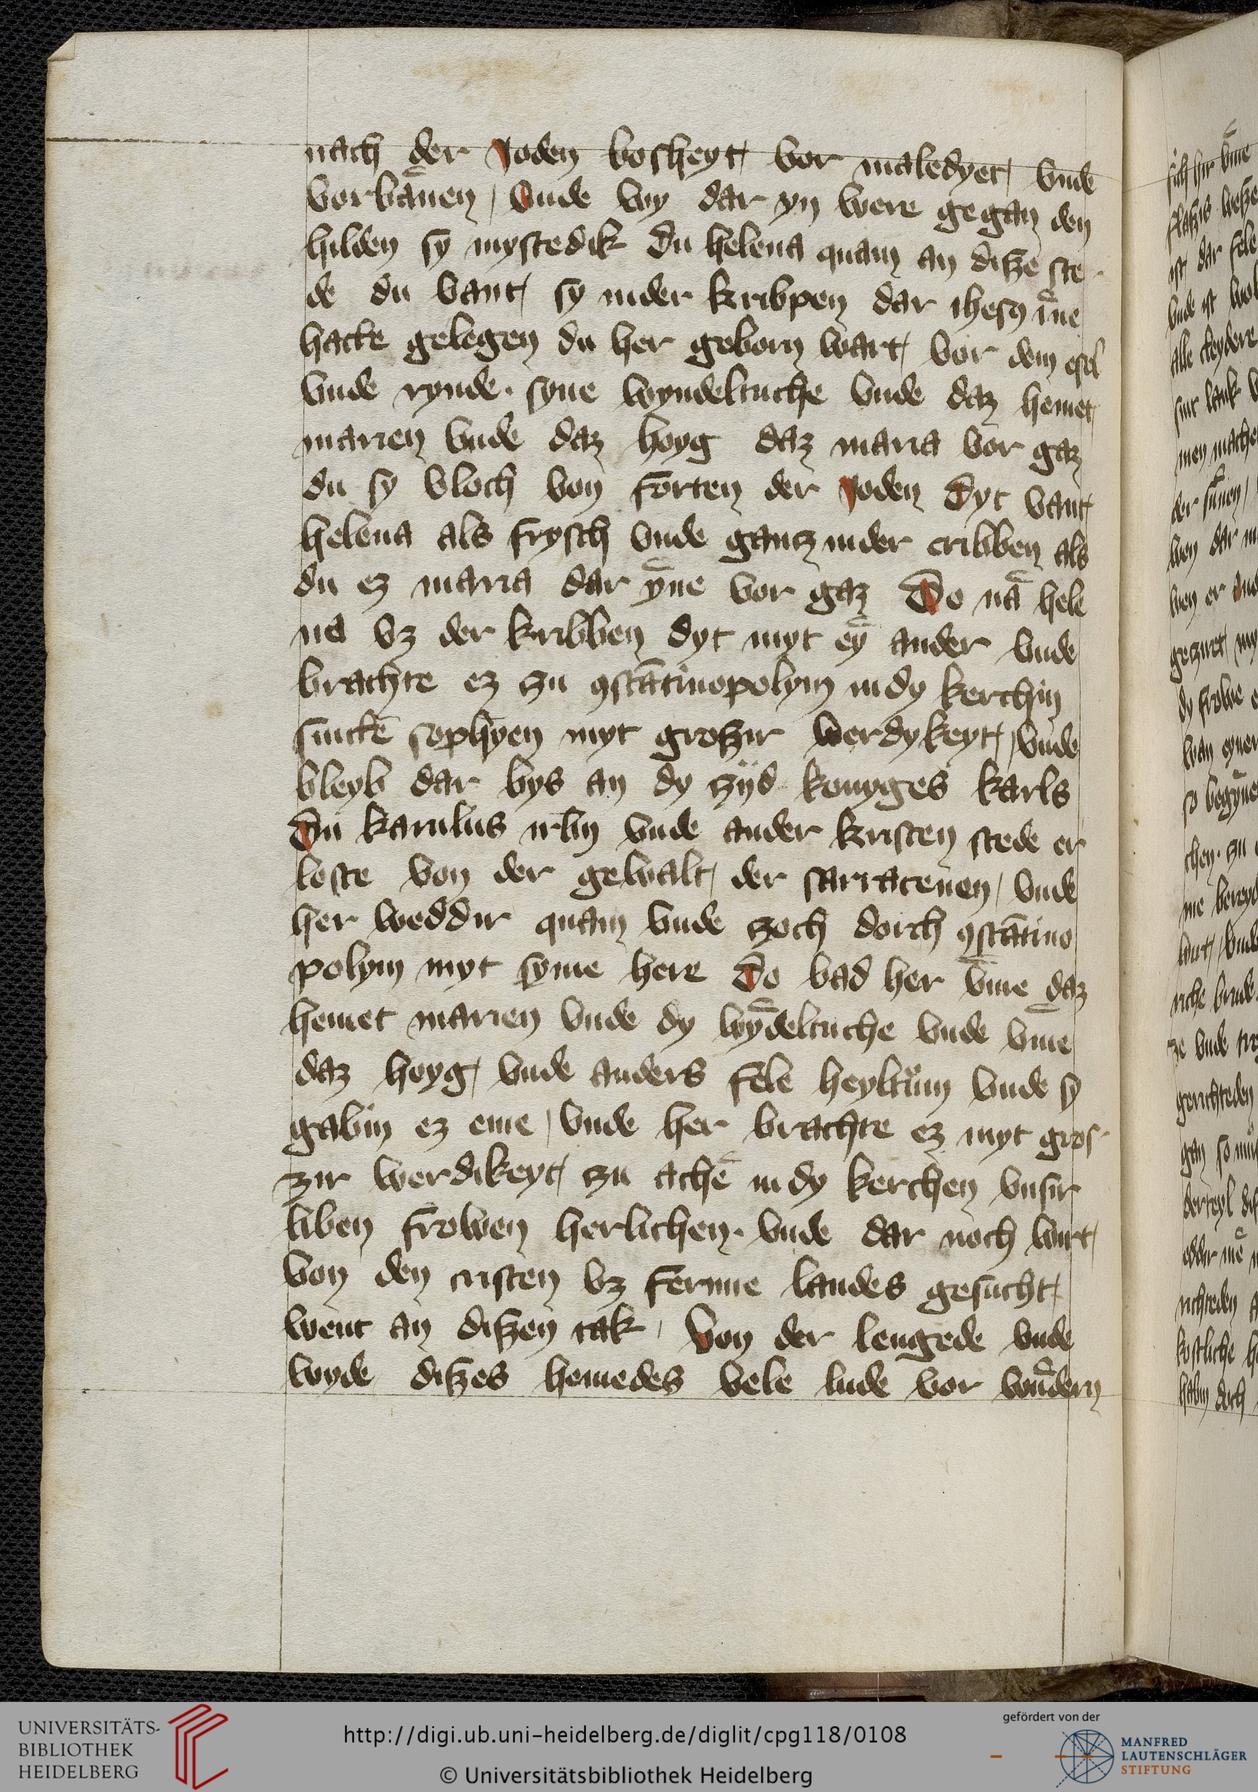 nach der Joden bosheyt vor maledyet vnde
vorbānen / Vnde wy dar yn were gegan den
hilden sy mystedik Du helena quam an disze ste
de du vant sy in der kribpen dar ihesꝯ īne
hatte gelegen du her geborn wart vor dem esel
vnde rynde · syne wyndeltuche vnde daz hemet
marien vnde daz hoyg daz maria vor gaz
du sy vloch von forten der Joden Dyt vant
helena als frysch vnde gancz in der cribben als
du ez maria dar ȳne vor gaz Do nā hele
na vz der kribben dyt myt eȳ ander vnde
brachte ez zu ꝯstātinopolym in dy kerchin
sinctē sophyen myt groszir werdykeyt / vnde
bleyb dar bys an dy zijd konyges karls
Du karulus irlm̄ vnde ander kristen stede er
loste von der gewalt der sarracenen / vnde
her weddir quam vnde zoch dorch ꝯstātino
polym myt syme here Do bad her vm̄e daz
hemet marien vnde dy wȳdeltuche vnde vm̄e
daz hoyg vnde anders fele heyltum vnde sy
gabin ez eme / vnde her brachte ez myt gros
zir werdikeyt zu achē in dy kerchen vnsir
liben frowen herlichen · vnde dar noch wirt
von den cristen vz ferrine landes gesucht
went an diszen tak / Von der lengede vnde
wyde diszes hemedes vele lude vor wūdern
UNIVERSITÄTS-
BIBLIOTHEK
HEIDELBERG
http://digi.ub.uni-heidelberg.de/diglit/cpg118/0108
© Universitätsbibliothek Heidelberg
gefördert von der
MANFRED
LAUTENSCHLÄGER
STIFTUNG